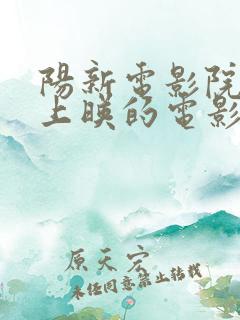 陽新電影院
上映的電影
原天宏
未經同意禁止轉載